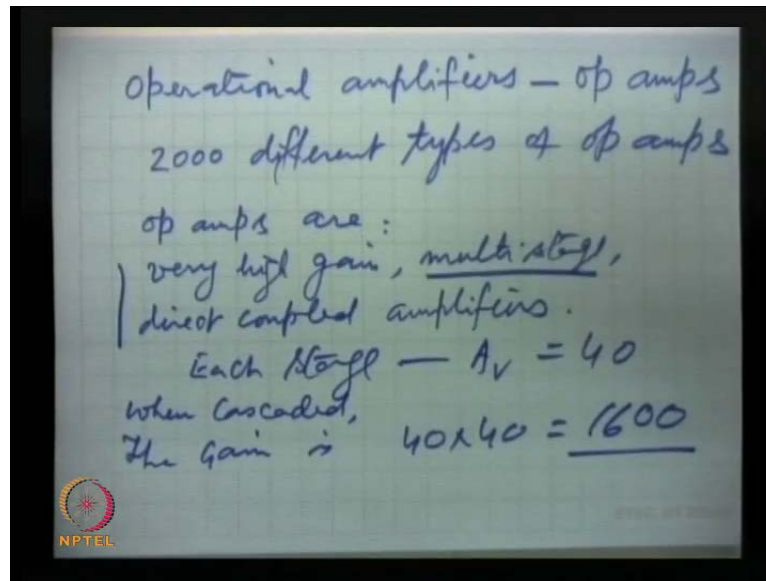 Operational amplifiers — op amps
2000 different types of op amps
op amps are:
very high gain, multi-stage,
direct coupled amplifiers.
Each stage — Av = 40
when cascaded,
The gain is 40x40 = 1600
NPTEL